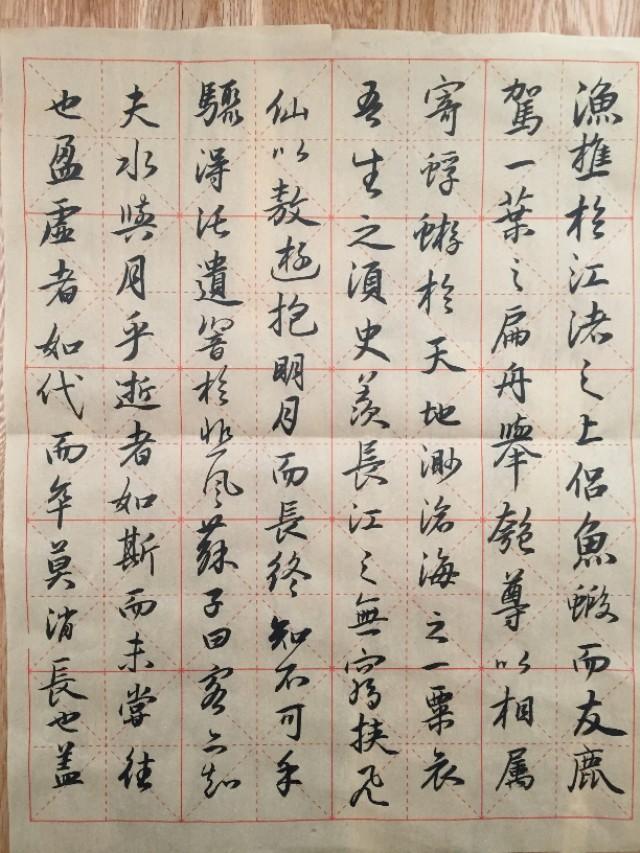 漁樵於江渚之上侶魚蝦而友鹿
駕一葉之扁舟舉匏尊以相属
寄蜉蝣於天地渺滄海之一粟哀
吾生之須臾羨長江之無窮挾飛
仙以遨遊抱明月而長終知不可乎
驟得託遺響於悲風蘇子曰客亦知
夫水與月乎逝者如斯而未嘗往
也盈虛者如代而卒莫消長也盖